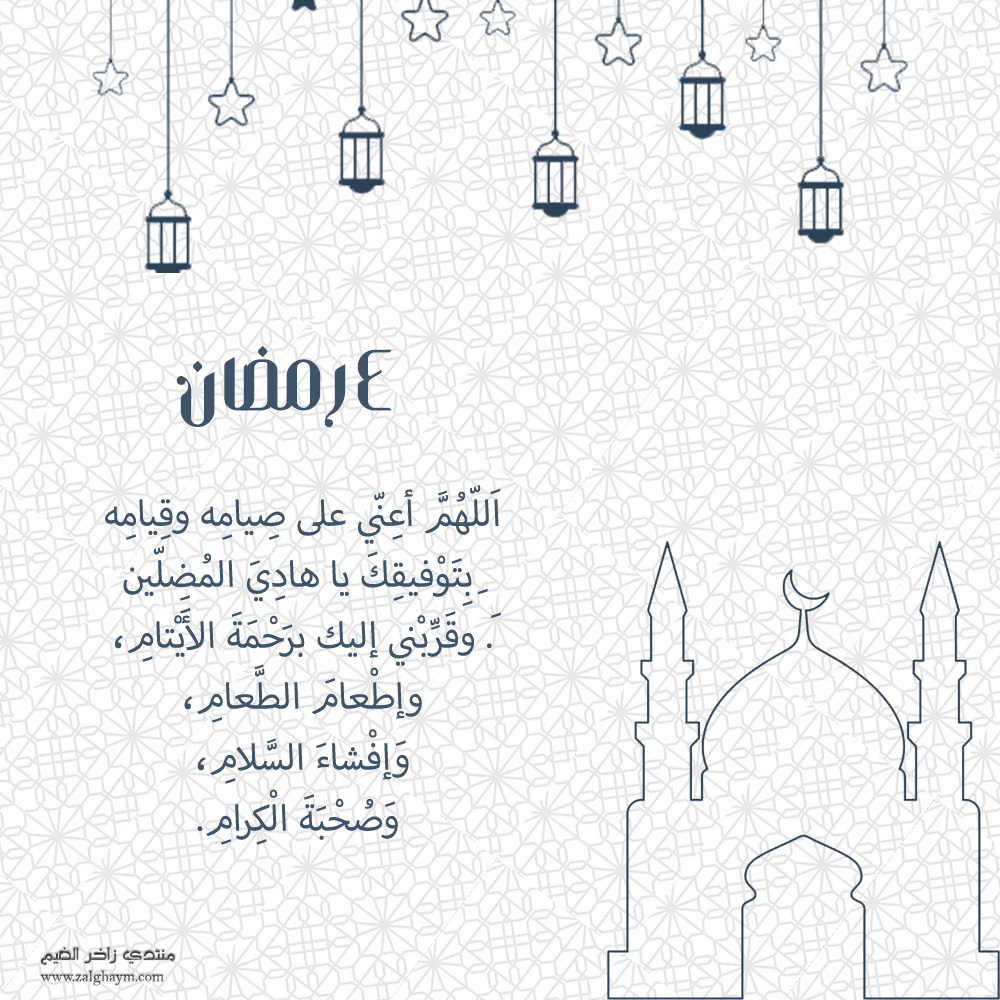 ٤ رمضان
اَللّهُمَّ أعِنّي على صِيامِه وقِيامِه
بِتَوْفيقِكَ يا هادِيَ المُضِلّين
َ. وقَرِّبْني إليك برَحْمَةَ الأَيْتامِ،
وإطْعامَ الطَّعامِ،
وَإفْشاءَ السَّلامِ،
وَصُحْبَةَ الْكِرامِ.
منتدي زاخر الغيم
www.zalghaym.com